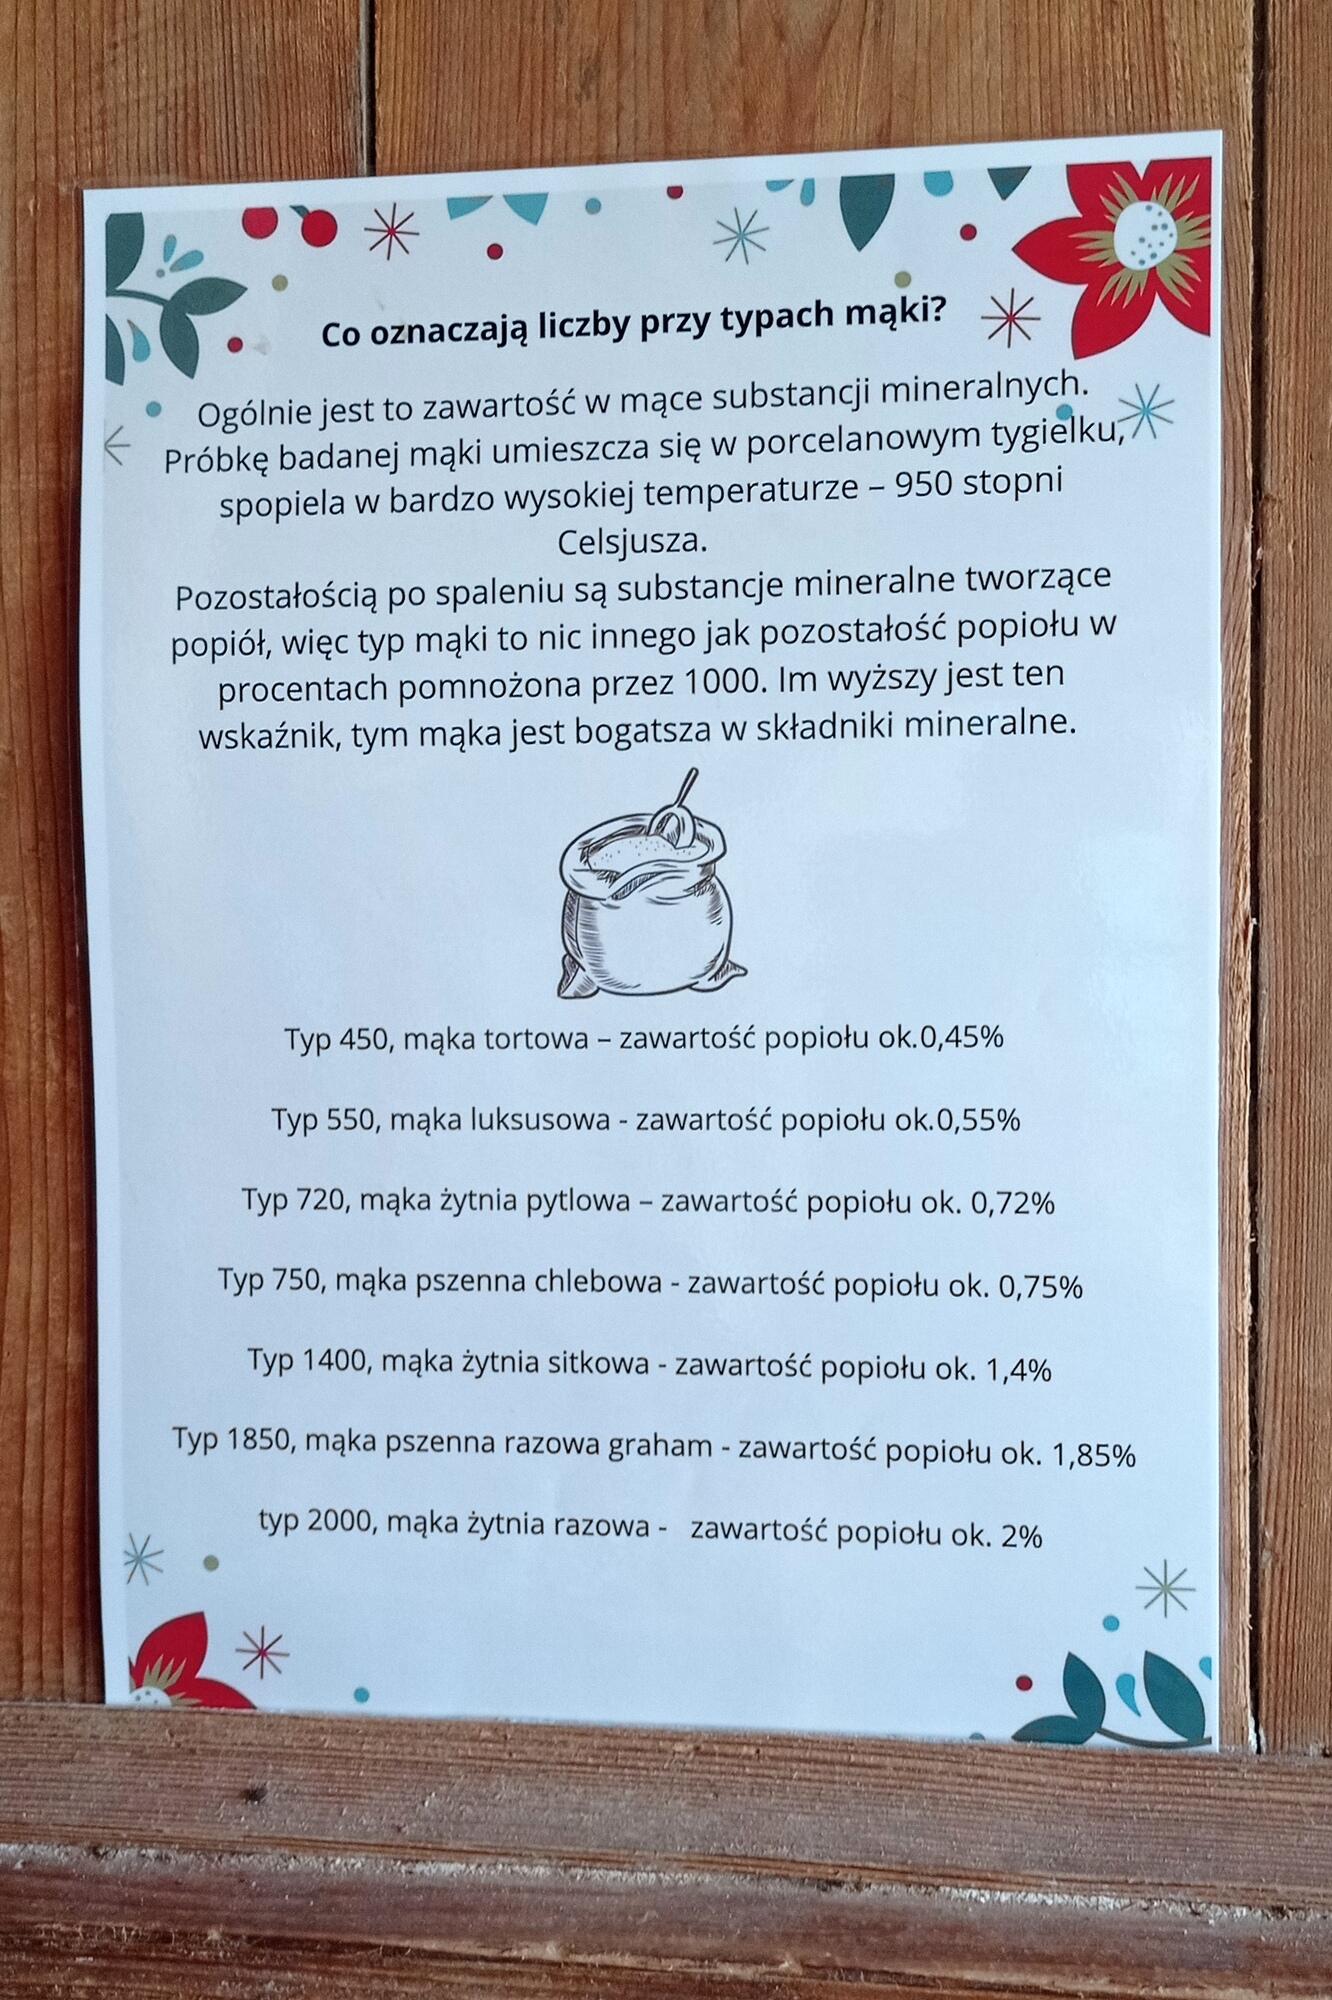 Co oznaczają liczby przy typach mąki?
Ogólnie jest to zawartość w mące substancji mineralnych.
Próbkę badanej mąki umieszcza się w porcelanowym tygielku,
spopiela w bardzo wysokiej temperaturze – 950 stopni
Celsjusza.
Pozostałością po spaleniu są substancje mineralne tworzące
popiół, więc typ mąki to nic innego jak pozostałość popiołu w
procentach pomnożona przez 1000. Im wyższy jest ten
wskaźnik, tym mąka jest bogatsza w składniki mineralne.
Typ 450, mąka tortowa – zawartość popiołu ok.0,45%
Typ 550, mąka luksusowa - zawartość popiołu ok.0,55%
Typ 720, mąka żytnia pytlowa – zawartość popiołu ok. 0,72%
Typ 750, mąka pszenna chlebowa - zawartość popiołu ok. 0,75%
Typ 1400, mąka żytnia sitkowa - zawartość popiołu ok. 1,4%
Typ 1850, mąka pszenna razowa graham - zawartość popiołu ok. 1,85%
typ 2000, mąka żytnia razowa - zawartość popiołu ok. 2%